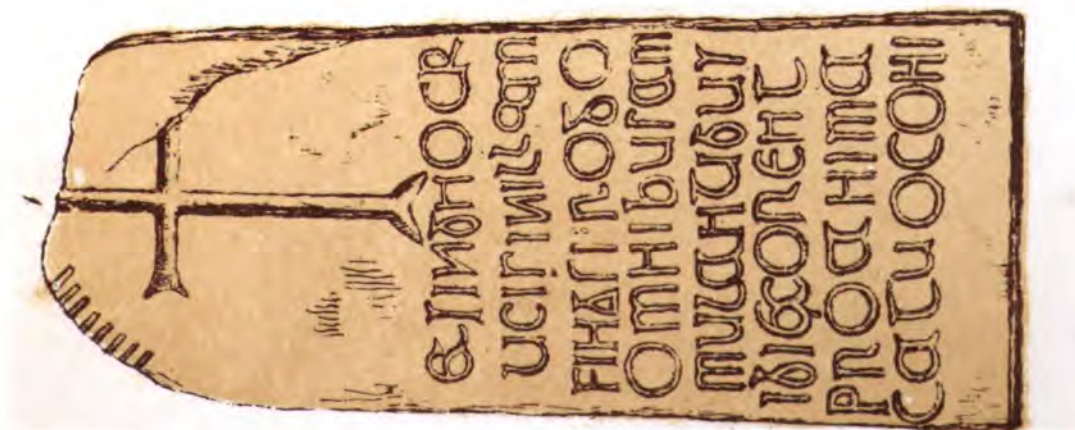 & singno cr
ucis in illam
fingsi rogo
omnibus am
mulantibus
ibi exorent
pro anima
catuoconi